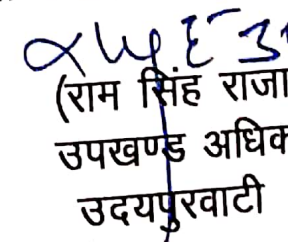 (राम सिंह राजा
उपखण्ड अधिक
उदयपुरवाटी